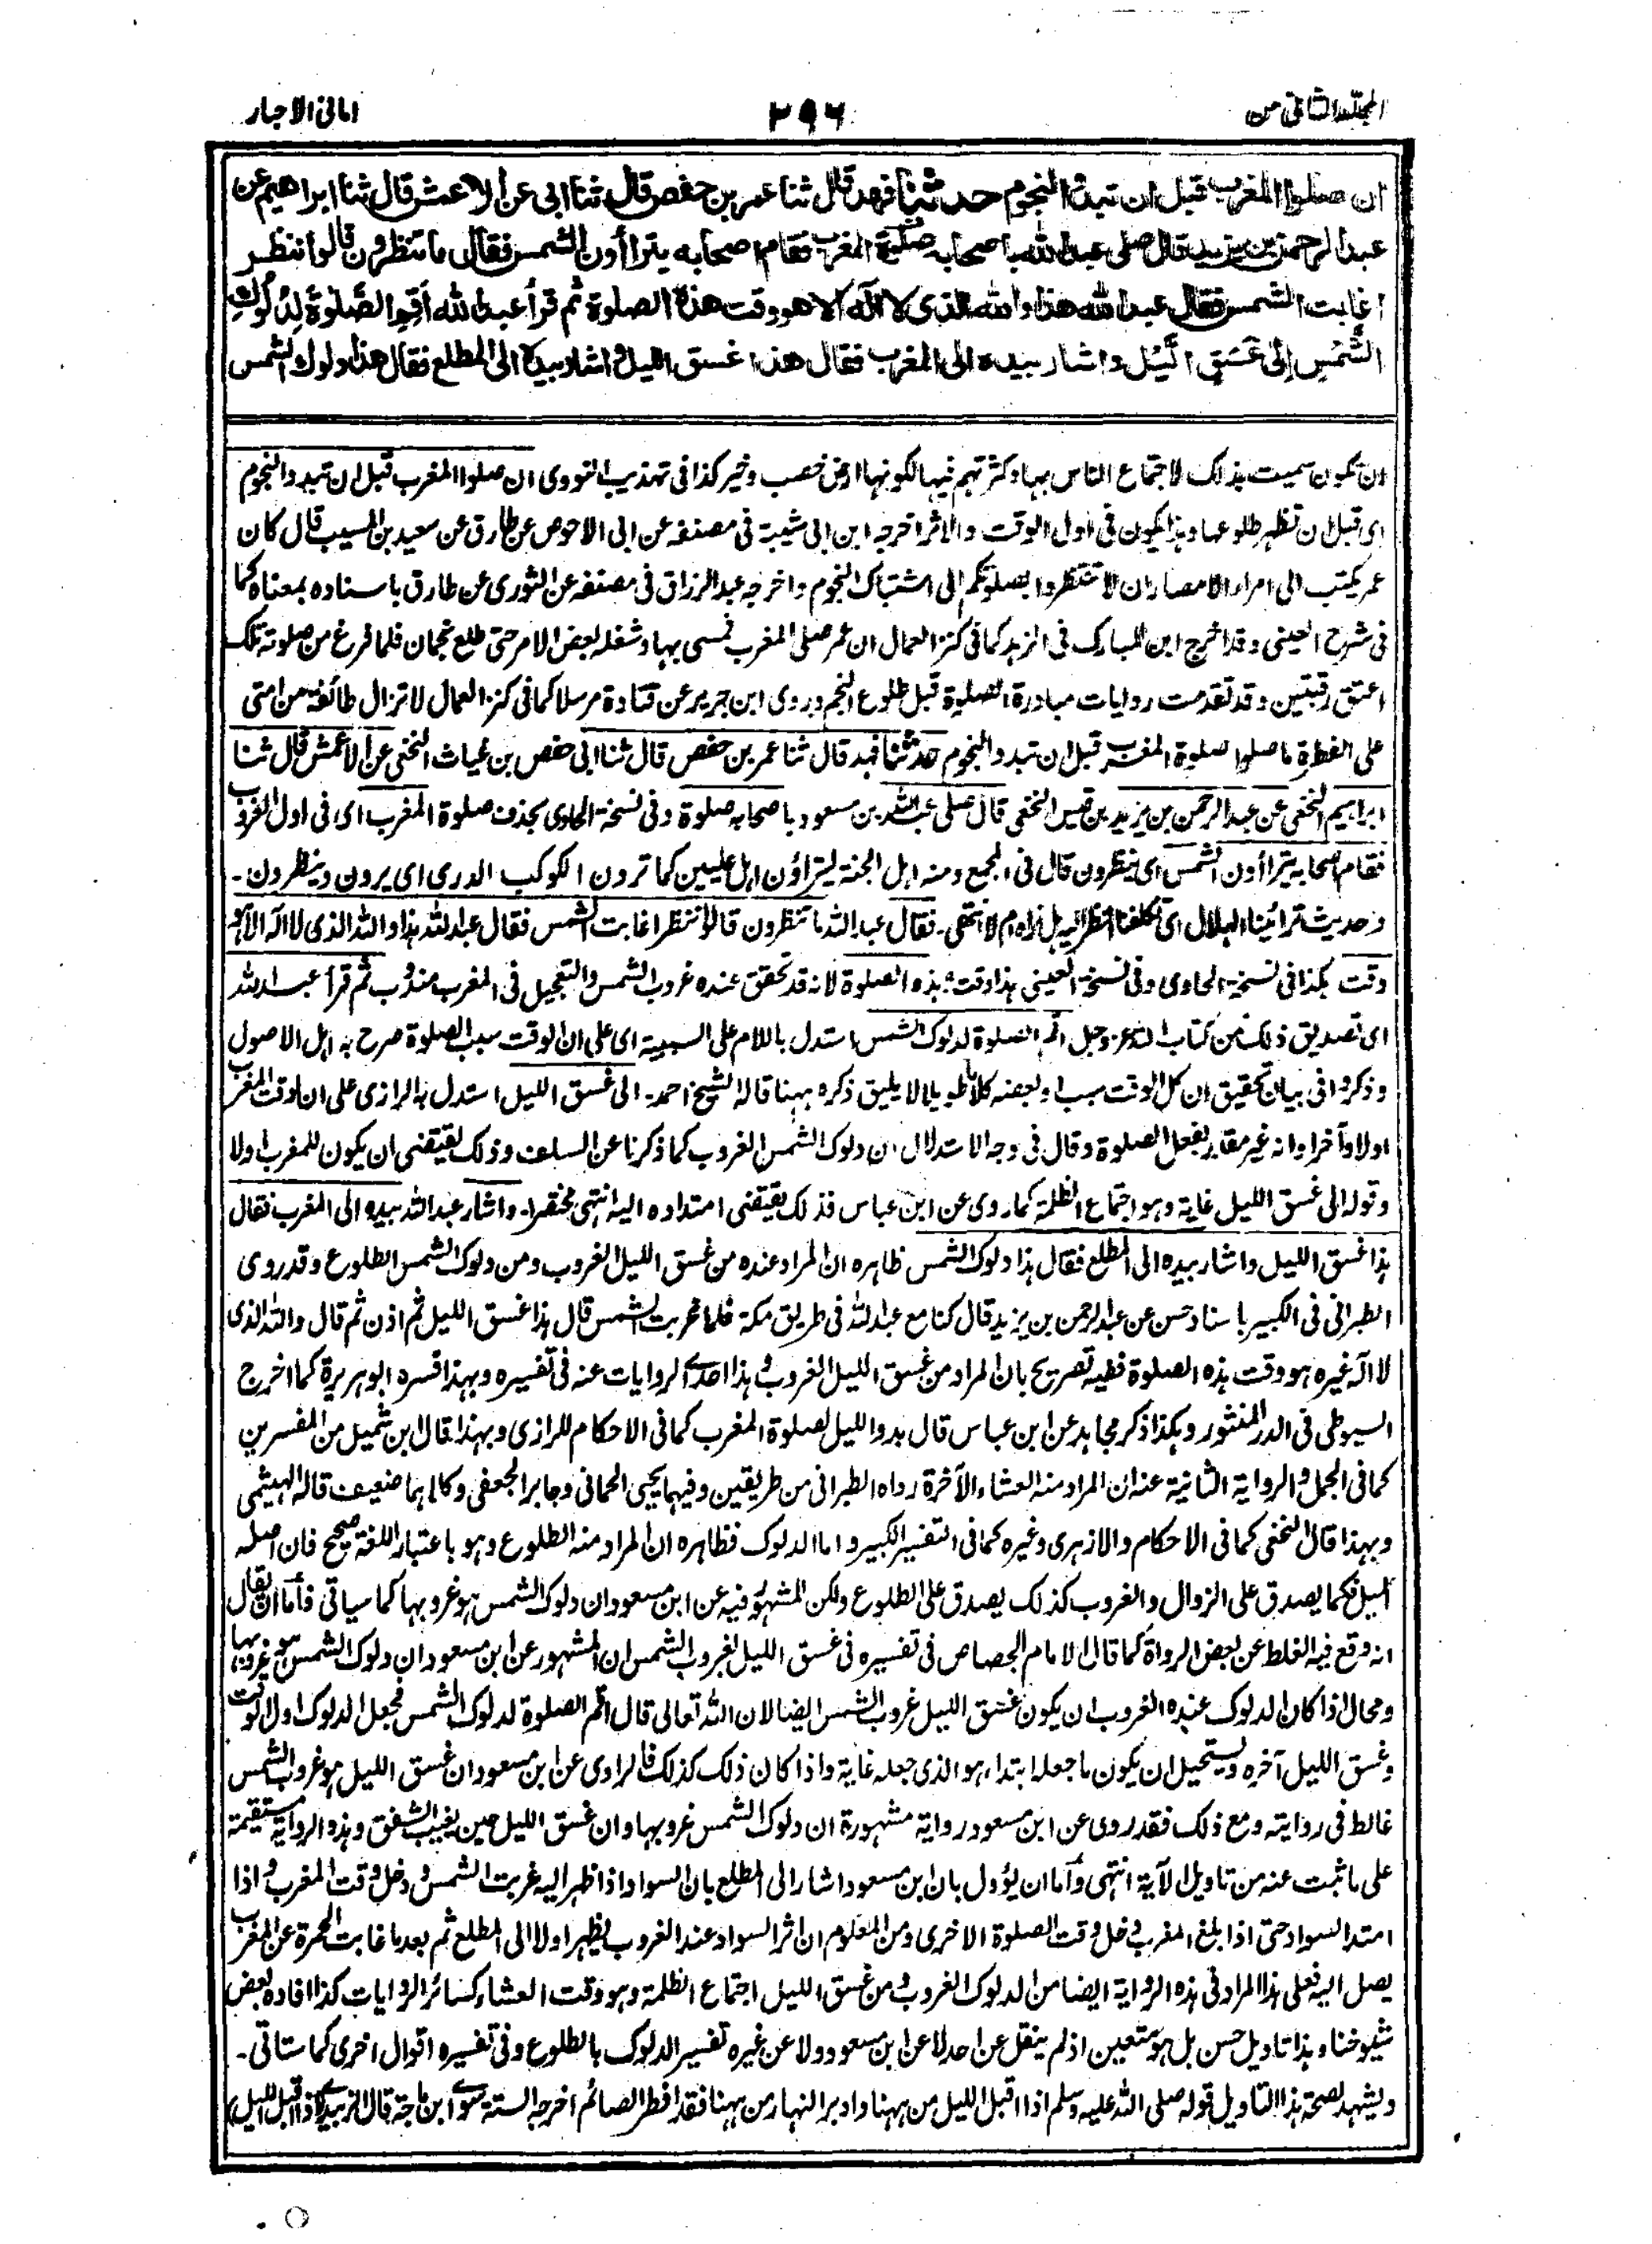 المجلد الثانى من
٢٩٦
امانى الاحبار
ان صلوا المغرب قبل ان تبدو النجوم حدثنا فهد قال ثنا عمر بن حفص قال ثنا ابى عن الاعمش قال ثنا ابراهيم عن
عبد الرحمن بن يزيد قال صلى عبد الله باصحابه صلوة المغرب فقام اصحابه يتراأون الشمس فقال ما تنظرون قالوا ننظر
اغابت الشمس فقال عبد الله هذا والله الذى لا اله الا هو وقت هذه الصلوة ثم قرأ عبد الله أَقِمِ الصَّلٰوةَ لِدُلُوْكِ
الشَّمْسِ إِلَى غَسَقِ الَّيْلِ واشار بيده الى المغرب فقال هذا غسق الليل واشار بيده الى المطلع فقال هذا دلوك الشمس
ان تكون سميت بذلك لاجتماع الناس بها وكثرتهم فيها لكونها ارض خصب وخير كذا فى تهذيب النووى ان صلوا المغرب قبل ان تبدو النجوم
اى قبل ان تظهر طلوعها وهذا يكون فى اول الوقت والاثر اخرجه ابن ابى شيبة فى مصنفه عن ابى الاحوص عن طارق عن سعيد بن المسيب قال كان
عمر يكتب الى امراء الامصار ان لا تنتظروا بصلوتكم الى اشتباك النجوم واخرجه عبد الرزاق فى مصنفه عن الثورى عن طارق باسناده بمعناه كما
فى شرح العينى وقد اخرج ابن المبارك فى الزهد كما فى كنز العمال ان عمر صلى المغرب فمسى بها وشغله بعض الامر حتى طلع نجمان فلما فرغ من صلوته تلك
اعتق رقبتين وقد تقدمت روايات مبادرة الصلوة قبل طلوع النجم وروى ابن جرير عن قتادة مرسلا كما فى كنز العمال لا تزال طائفة من امتى
على الفطرة ما صلوا صلوة المغرب قبل ان تبدو النجوم حدثنا فهد قال ثنا عمر بن حفص قال ثنا ابى حفص بن غياث النخعى عن الاعمش قال ثنا
ابراهيم النخعى عن عبد الرحمن بن يزيد بن قيس النخعى قال صلى عبد الله بن مسعود باصحابه صلوة وفى نسخة الحاوى بحذف صلوة المغرب اى فى اول الغروب
فقام اصحابه يتراأون الشمس اى ينظرون قال فى المجمع ومنه اهل الجنة ليتراؤن اهل عليين كما ترون الكوكب الدرى اى يرون وينظرون۔
وحديث ترائينا الهلال اى تكلفنا النظر اليه هل نراه ام لا انتهى۔ فقال عبد الله ما تنظرون قالوا ننظر اغابت الشمس فقال عبد الله هذا والله الذى لا اله الا هو
وقت هكذا فى نسخة الحاوى وفى نسخة العينى هذا وقت هذه الصلوة لانه قد تحقق عنده غروب الشمس والتعجيل فى المغرب مندوب ثم قرأ عبد الله
اى تصديق ذلك من كتاب الله عزوجل اقم الصلوة لدلوك الشمس استدل باللام على السببية اى على ان الوقت سبب الصلوة صرح به اهل الاصول
وذكروا فى بيان تحقيق ان كل الوقت سبب او بعضه كلاما طويلا لا يليق ذكره ههنا قاله الشيخ احمد۔ الى غسق الليل استدل به الرازى على ان لوقت المغرب
اولا وآخرا وانه غير مقدر بفعل الصلوة وقال فى وجه الاستدلال ان دلوك الشمس الغروب كما ذكرنا عن السلف وذلك يقتضى ان يكون للمغرب اولا
وقوله الى غسق الليل غاية وهو اجتماع الظلمة كما روى عن ابن عباس فذلك يقتضى امتداده اليه انتهى مختصرا۔ واشار عبد الله بيده الى المغرب فقال
هذا غسق الليل واشار بيده الى المطلع فقال هذا دلوك الشمس ظاهره ان المراد عنده من غسق الليل الغروب ومن دلوك الشمس الطلوع وقد روى
الطبرانى فى الكبير باسناد حسن عن عبد الرحمن بن يزيد قال كنا مع عبد الله فى طريق مكة فلما غربت الشمس قال هذا غسق الليل ثم اذن ثم قال والله الذى
لا اله غيره هو وقت هذه الصلوة ففيه تصريح بان المراد من غسق الليل الغروب وهذا احدى الروايات عنه فى تفسيره وبهذا فسره ابو هريرة كما اخرج
السيوطى فى الدر المنثور وهكذا ذكر مجاهد عن ابن عباس قال بدو الليل لصلوة المغرب كما فى الاحكام للرازى وبهذا قال ابن شميل من المفسرين
كما فى الجمل والرواية الثانية عنه ان المراد منه العشاء الآخرة رواه الطبرانى من طريقين وفيهما يحيى الحمانى وجابر الجعفى وكلاهما ضعيف قاله الهيثمى
وبهذا قال النخعى كما فى الاحكام والازهرى وغيره كما فى التفسير الكبير واما الدلوك فظاهره ان المراد منه الطلوع وهو باعتبار اللغة صحيح فان اصله
الميل فكما يصدق على الزوال والغروب كذلك يصدق على الطلوع ولكن المشهور فيه عن ابن مسعود ان دلوك الشمس هو غروبها كما سياتى فأما ان يقال
انه وقع فيه الغلط عن بعض الرواة كما قال الامام الجصاص فى تفسيره فى غسق الليل بغروب الشمس ان المشهور عن ابن مسعود ان دلوك الشمس هو غروبها
ومحال اذا كان الدلوك عنده الغروب ان يكون غسق الليل غروب الشمس ايضا لان الله تعالى قال اقم الصلوة لدلوك الشمس فجعل الدلوك اول الوقت
وغسق الليل آخره ويستحيل ان يكون ما جعله ابتداء هو الذى جعله غاية واذا كان ذلك كذلك فالراوى عن ابن مسعود ان غسق الليل هو غروب الشمس
غالط فى روايته ومع ذلك فقد روى عن ابن مسعود رواية مشهورة ان دلوك الشمس غروبها وان غسق الليل حين يغيب الشفق وهذه الرواية مستقيمة
على ما ثبت عنه من تاويل الآية انتهى وأما ان يؤول بان ابن مسعود اشار الى المطلع بان السواد اذا ظهر اليه غربت الشمس ودخل وقت المغرب واذا
امتد السواد حتى اذا بلغ المغرب دخل وقت الصلوة الاخرى ومن المعلوم ان اثر السواد عند الغروب يظهر اولا الى المطلع ثم بعد ما غابت الحمرة عن المغرب
يصل اليه فعلى هذا المراد فى هذه الرواية ايضا من الدلوك الغروب ومن غسق الليل اجتماع الظلمة وهو وقت العشاء كسائر الروايات كذا افاده بعض
شيوخنا وهذا تاويل حسن بل هو متعين اذ لم ينقل عن احد لا عن ابن مسعود ولا عن غيره تفسير الدلوك بالطلوع وفى تفسيره اقوال اخرى كما ستاتى۔
ويشهد لصحة هذا التاويل قوله صلى الله عليه وسلم اذا اقبل الليل من ههنا وادبر النهار من ههنا فقد افطر الصائم اخرجه الستة سوى ابن ماجة قال الزبيدى (اذا اقبل الليل)